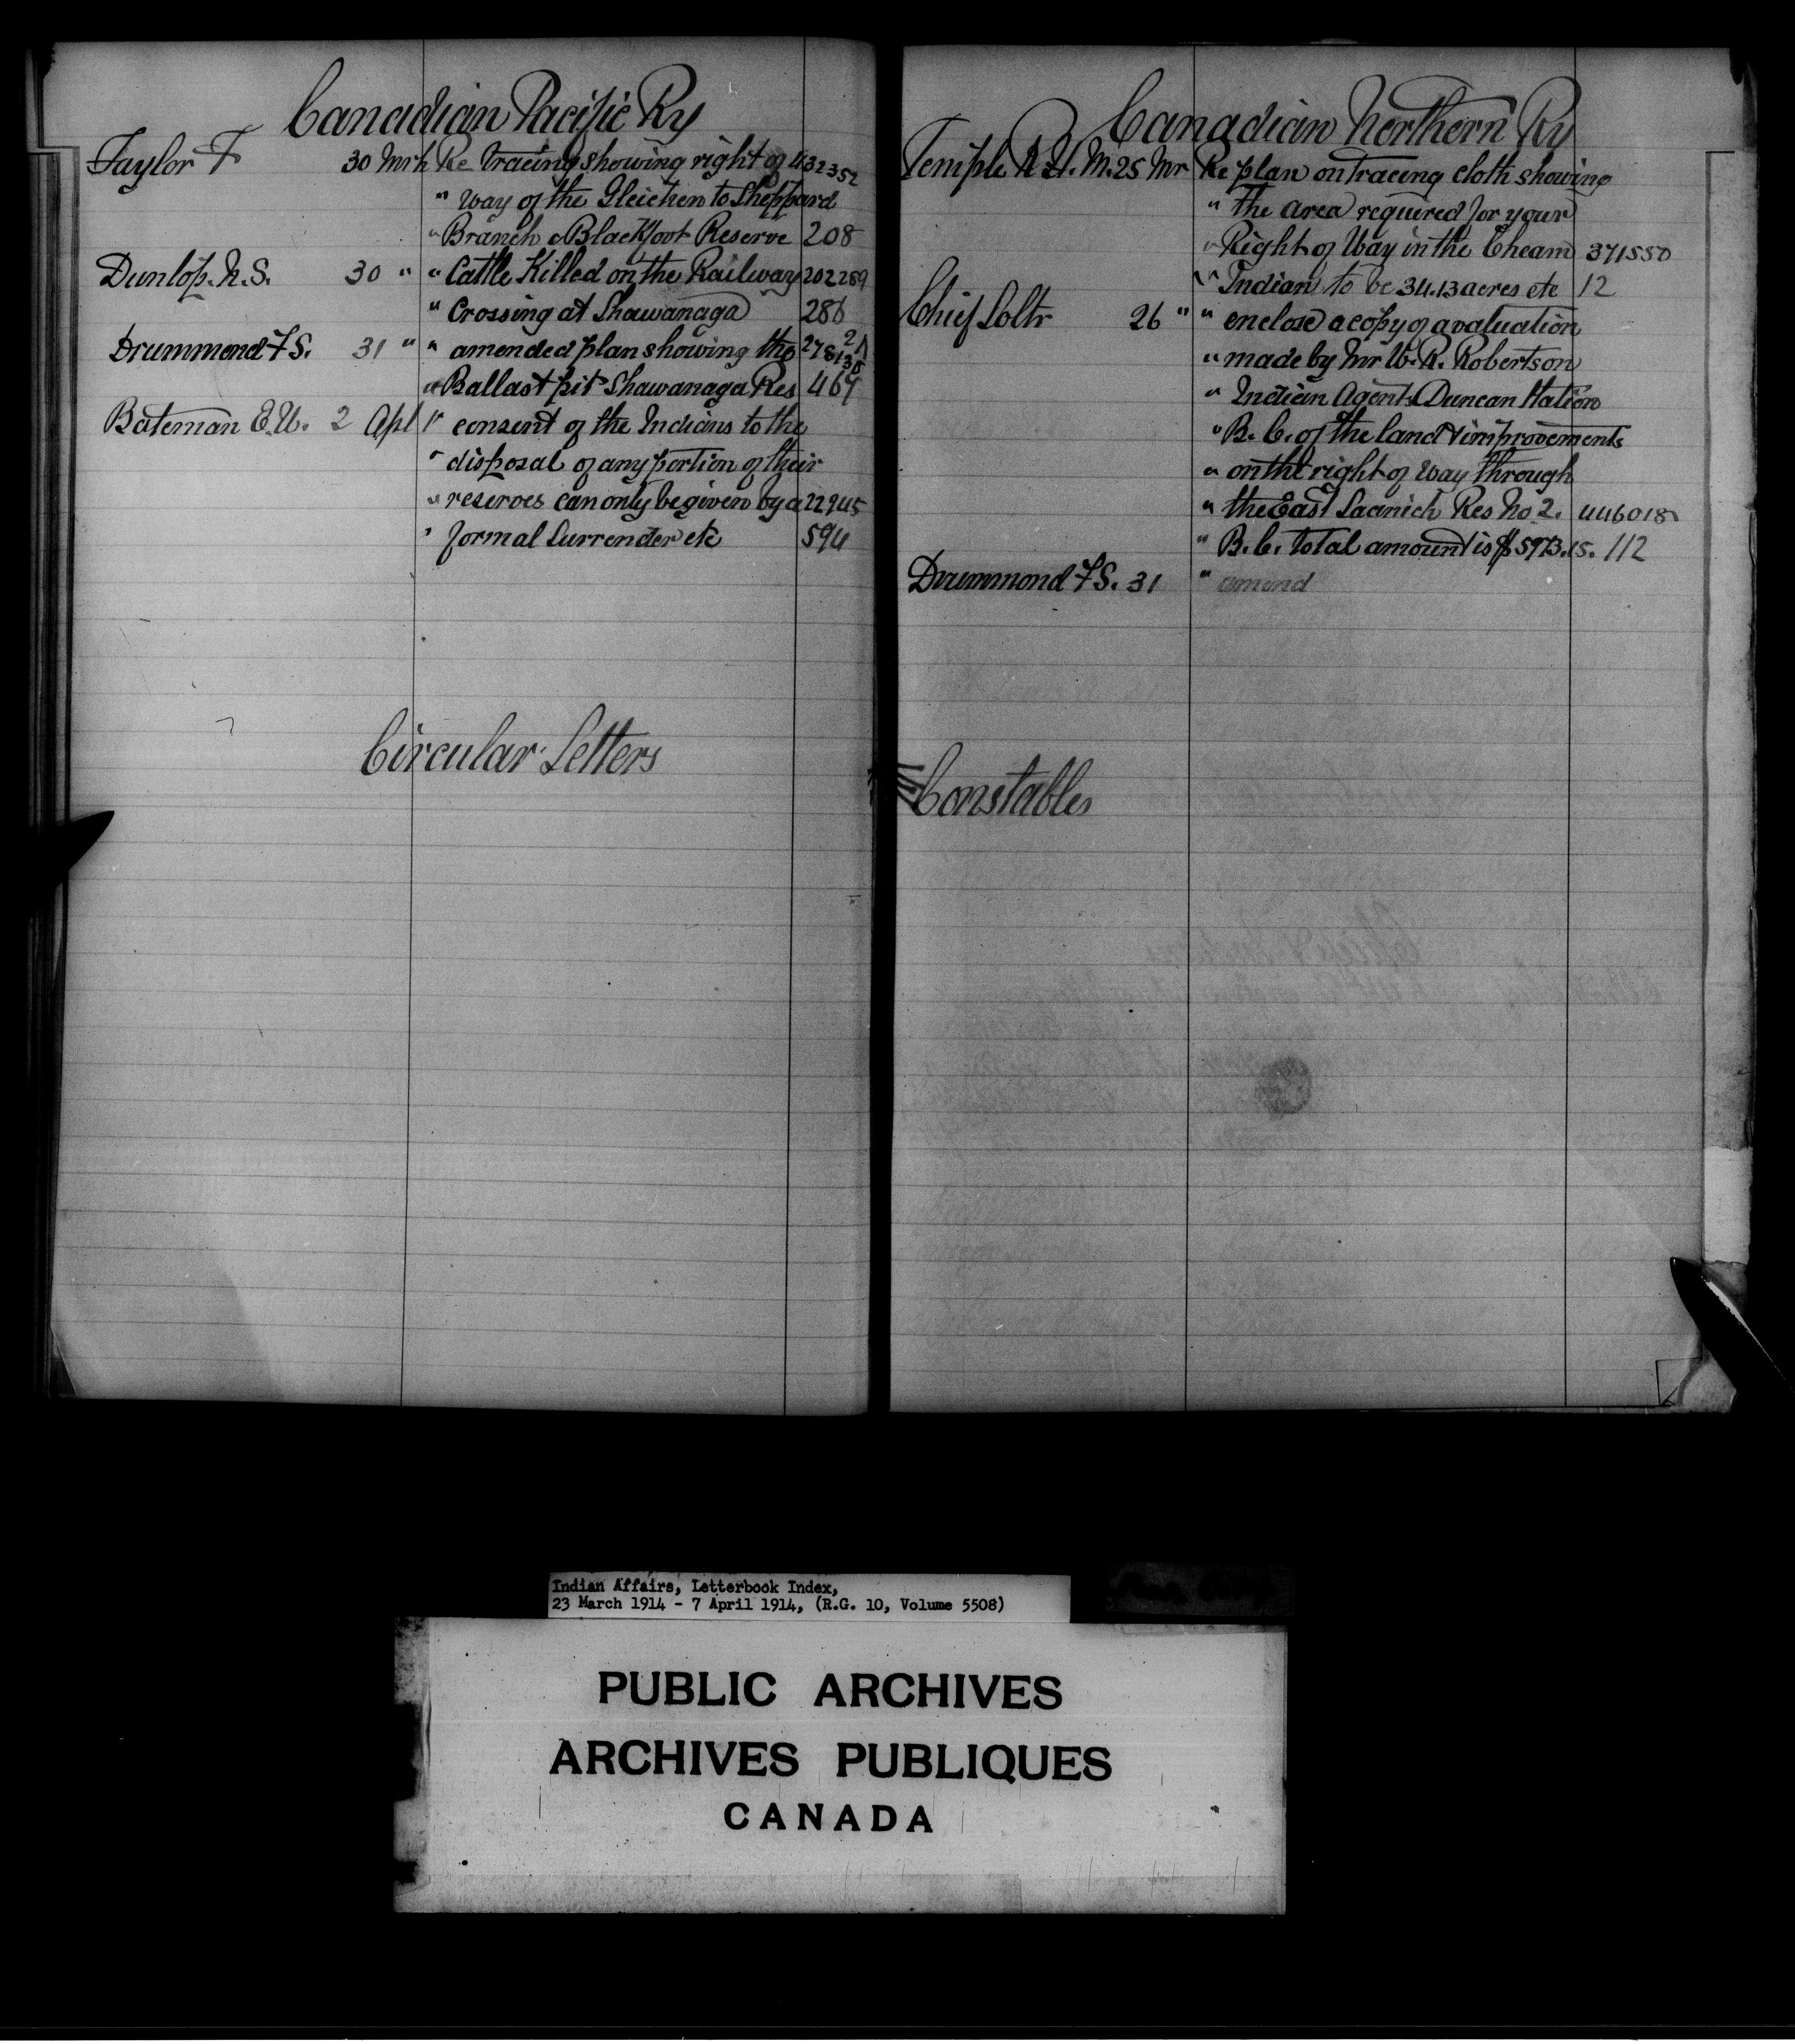 Canadian Pacific Ry
Taylor F 30 Mrh Re tracing showing right of 432352
" way of the Gleichen to Sheppard
" Branch Blackfoot Reserve 208
Dunlop. N. S. 30 " " Cattle Killed on the Railway 202289
" Crossing at Shawanaga 286
Drummond F S. 31 " " amended plan showing the 278138
" Ballast pit Shawanaga Res 467
Bateman E. W. 2 Apl " consent of the Indians to the
" disposal of any portion of their
" reserves can only be given by a 22945
" formal Surrender etc 594
Circular Letters
Canadian Northern Ry
Temple R. H. M. 25 Mr Re plan on tracing cloth showing
" the area required for your
" Right of Way in the Cheam 371550
" Indians to be 34.13 acres etc 12
Chief Soltr 26 " " enclose a copy of a valuation
" made by Mr W. R. Robertson
" Indian Agent Duncan Station
" B. C. of the land & improvements
" on the right of way through
" the East Saanich Res No 2. 446018
" B. C. total amount is $5973.15. 112
Drummond F S. 31 " amend
Constables
Indian Affairs, Letterbook Index,
23 March 1914 - 7 April 1914, (R.G. 10, Volume 5508)
PUBLIC ARCHIVES
ARCHIVES PUBLIQUES
CANADA